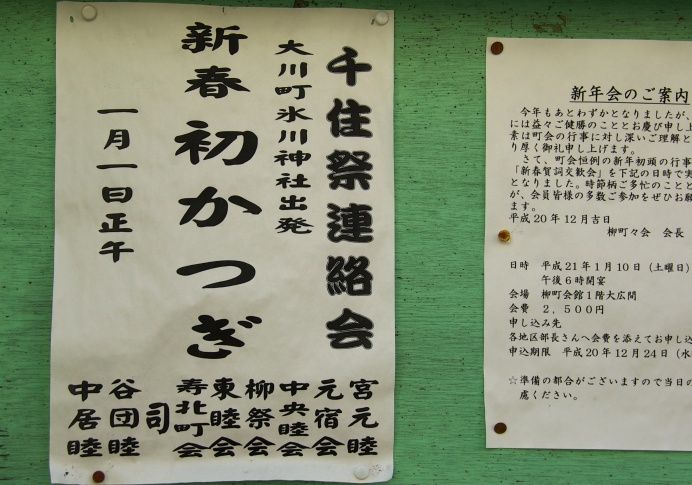 千住祭連絡会
大川町氷川神社出発
新春初かつぎ
一月一日正午
宮元睦
元宿会
中央睦会
柳祭会
東睦会
寿北町会
司
谷団睦
中居睦
新年会のご案内
今年もあとわずかとなりましたが、
には益々ご健勝のこととお慶び申し上
素は町会の行事に対し深いご理解と
り厚く御礼申し上げます。
さて、町会恒例の新年初頭の行事
「新春賀詞交歓会」を下記の日時で実
となりました。時節柄ご多忙のことと
が、会員皆様の多数ご参加をぜひお願
ます。
平成20年12月吉日
柳町々会 会長
日時 平成21年1月10日(土曜日)
午後6時開宴
会場 柳町会館1階大広間
会費 2,500円
申し込み先
各地区部長さんへ会費を添えてお申し込
申込期限 平成20年12月24日(水
☆準備の都合がございますので当日の
慮ください。